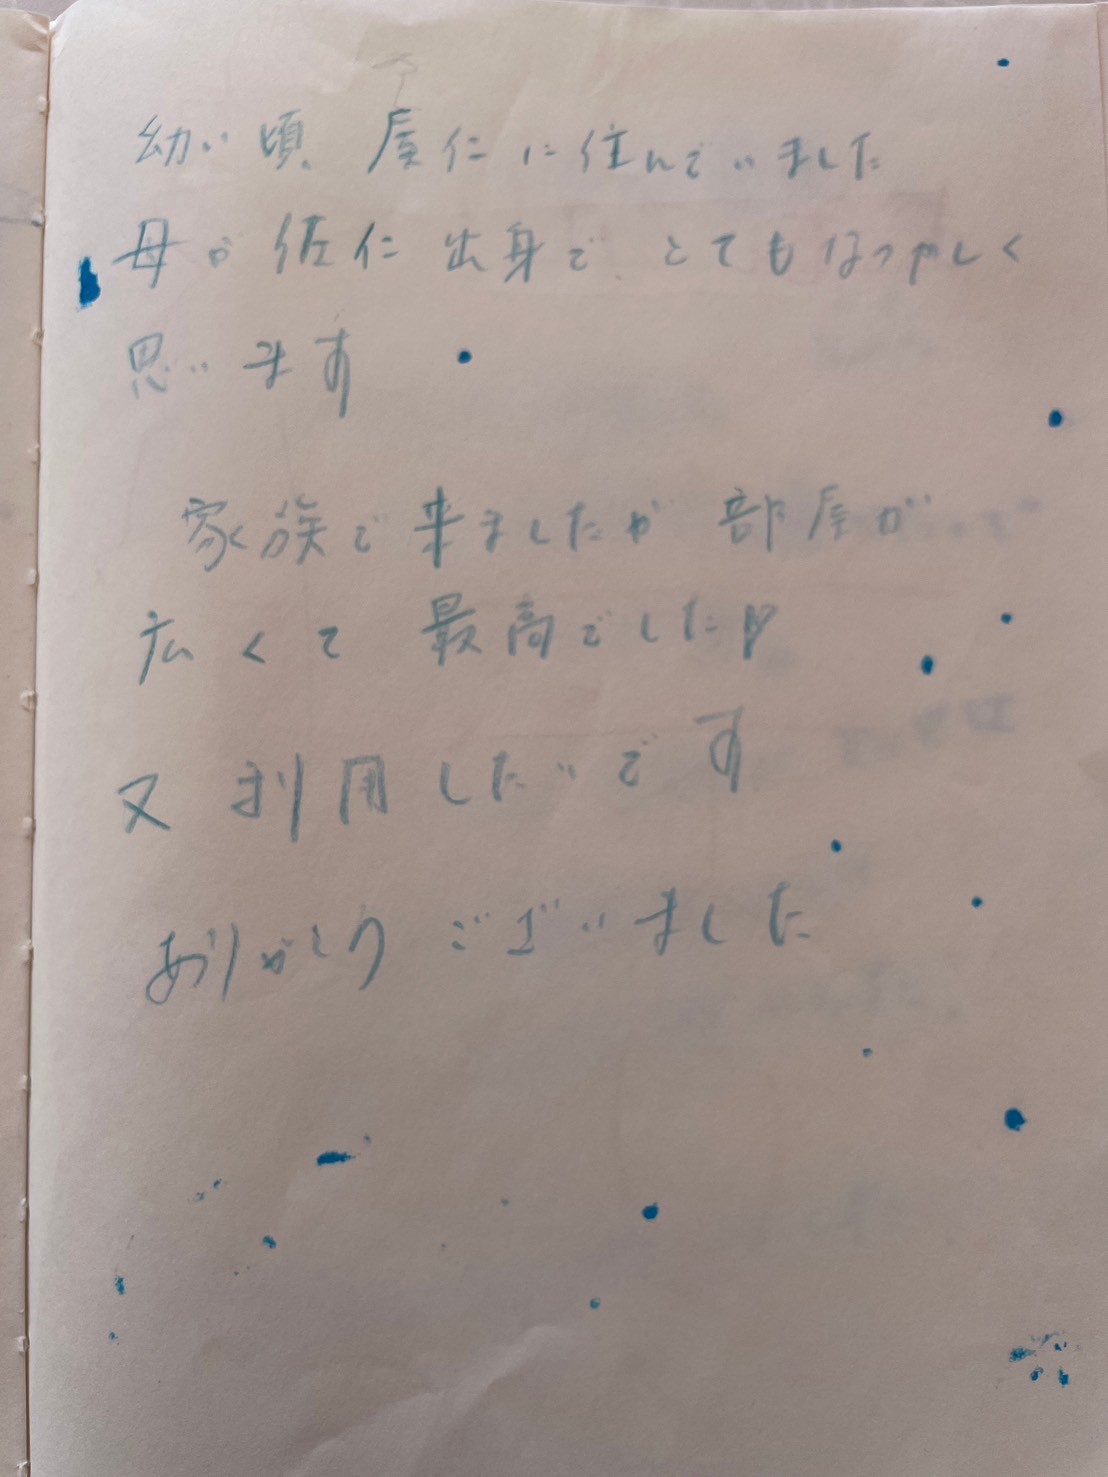 幼い頃、屋仁に住んでいました
母が佐仁出身で、とてもなつかしく
思います
家族で来ましたが部屋が
広くて最高でした♡
又利用したいです
ありがとうございました